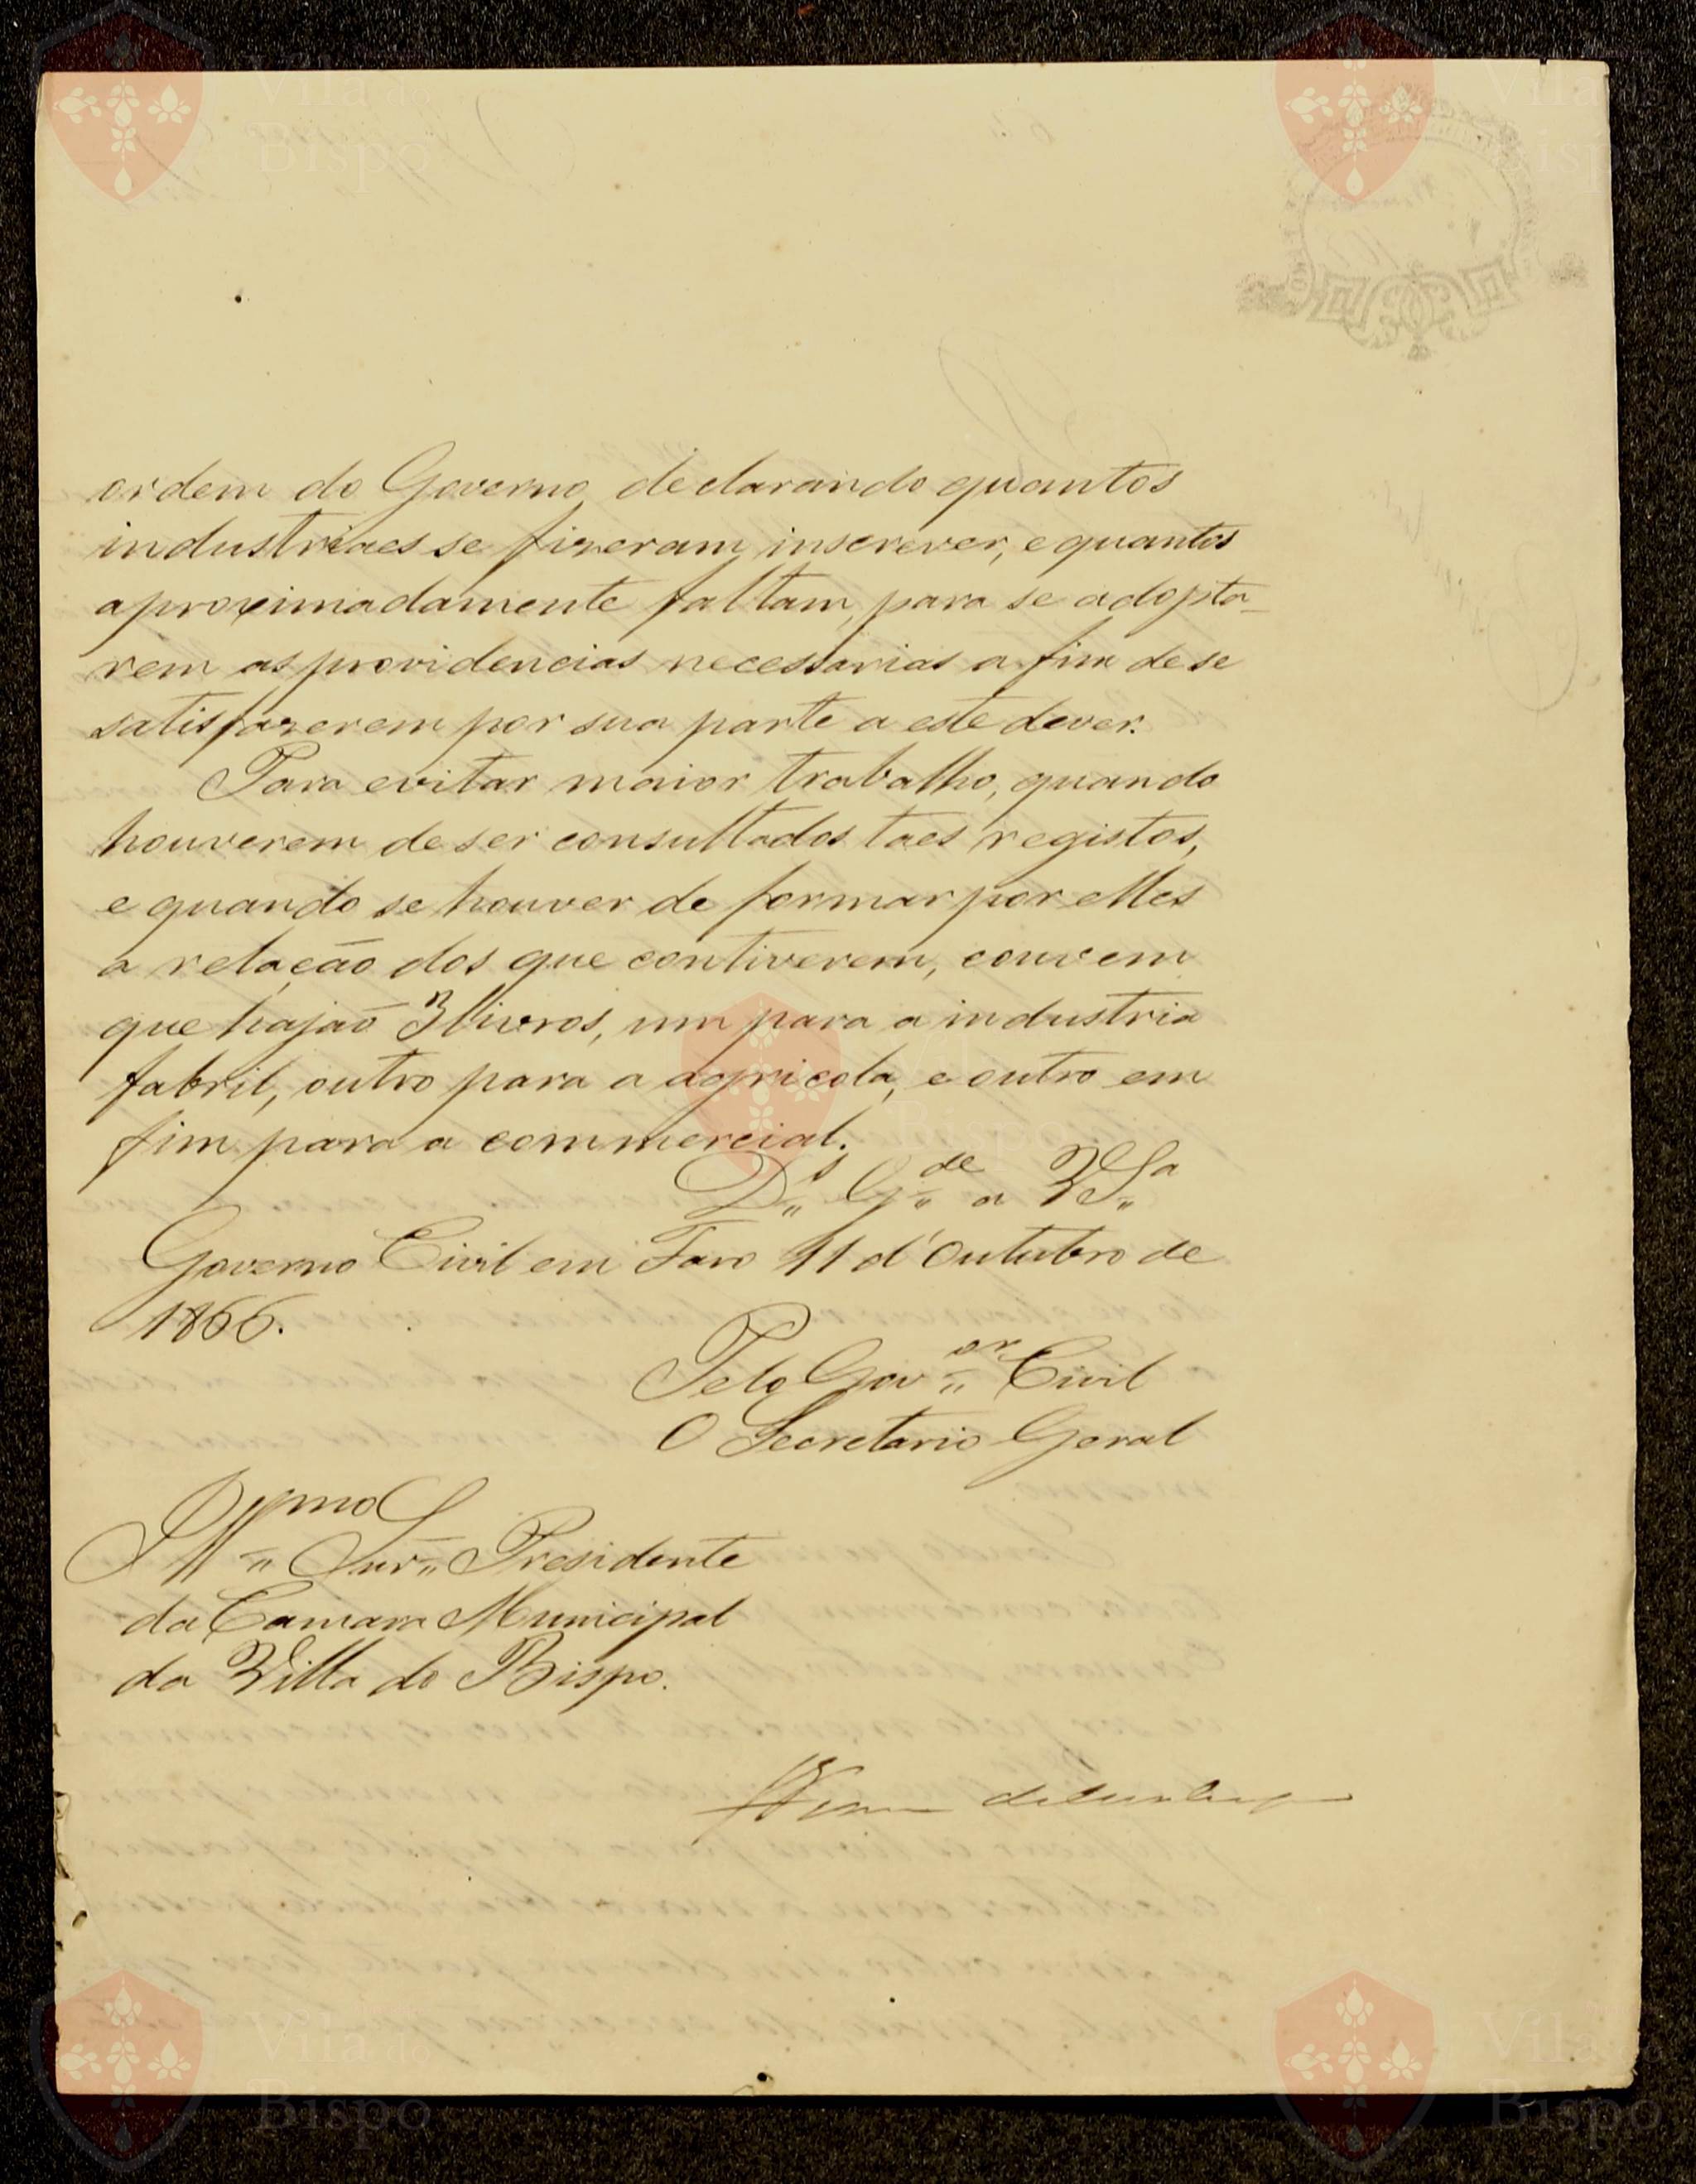 ordem do Governo, declarando quantos
industriaes se fizeram inscrever, e quantos
aproximadamente faltam, para se adopta-
rem as providencias necessarias a fim de se
satisfazerem por sua parte a este dever.
Para evitar maior trabalho, quando
houverem de ser consultados taes registos,
e quando se houver de formar por elles
a relação dos que contiverem, convem
que hajaõ 3 livros, um para a industria
fabril, outro para a agricola, e outro em
fim para a commercial.
D.s G.de a V.S.a
Governo Civil em Faro 11 d'Outubro de
1866.
Pelo Gov.or Civil
O Secretario Geral
Ill.mo Snr. Presidente
da Camara Municipal
da Villa do Bispo.
Vila do
Bispo
Vila do
Bispo
Vila do
Bispo
Vila do
Bispo
Vila do
Bispo